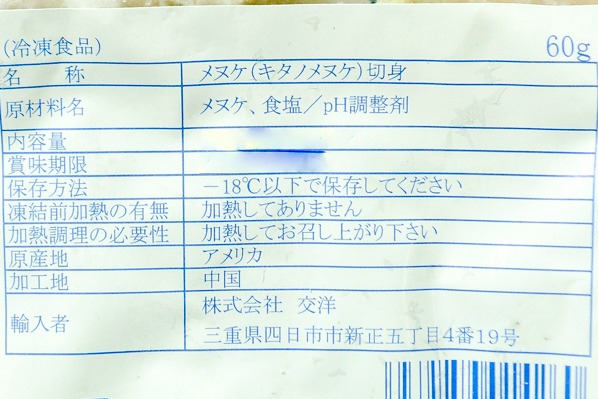 (冷凍食品) 60g
名 称 メヌケ(キタノメヌケ)切身
原材料名 メヌケ、食塩/pH調整剤
内容量
賞味期限
保存方法 -18℃以下で保存してください
凍結前加熱の有無 加熱してありません
加熱調理の必要性 加熱してお召し上がり下さい
原産地 アメリカ
加工地 中国
輸入者 株式会社 交洋
三重県四日市市新正五丁目4番19号